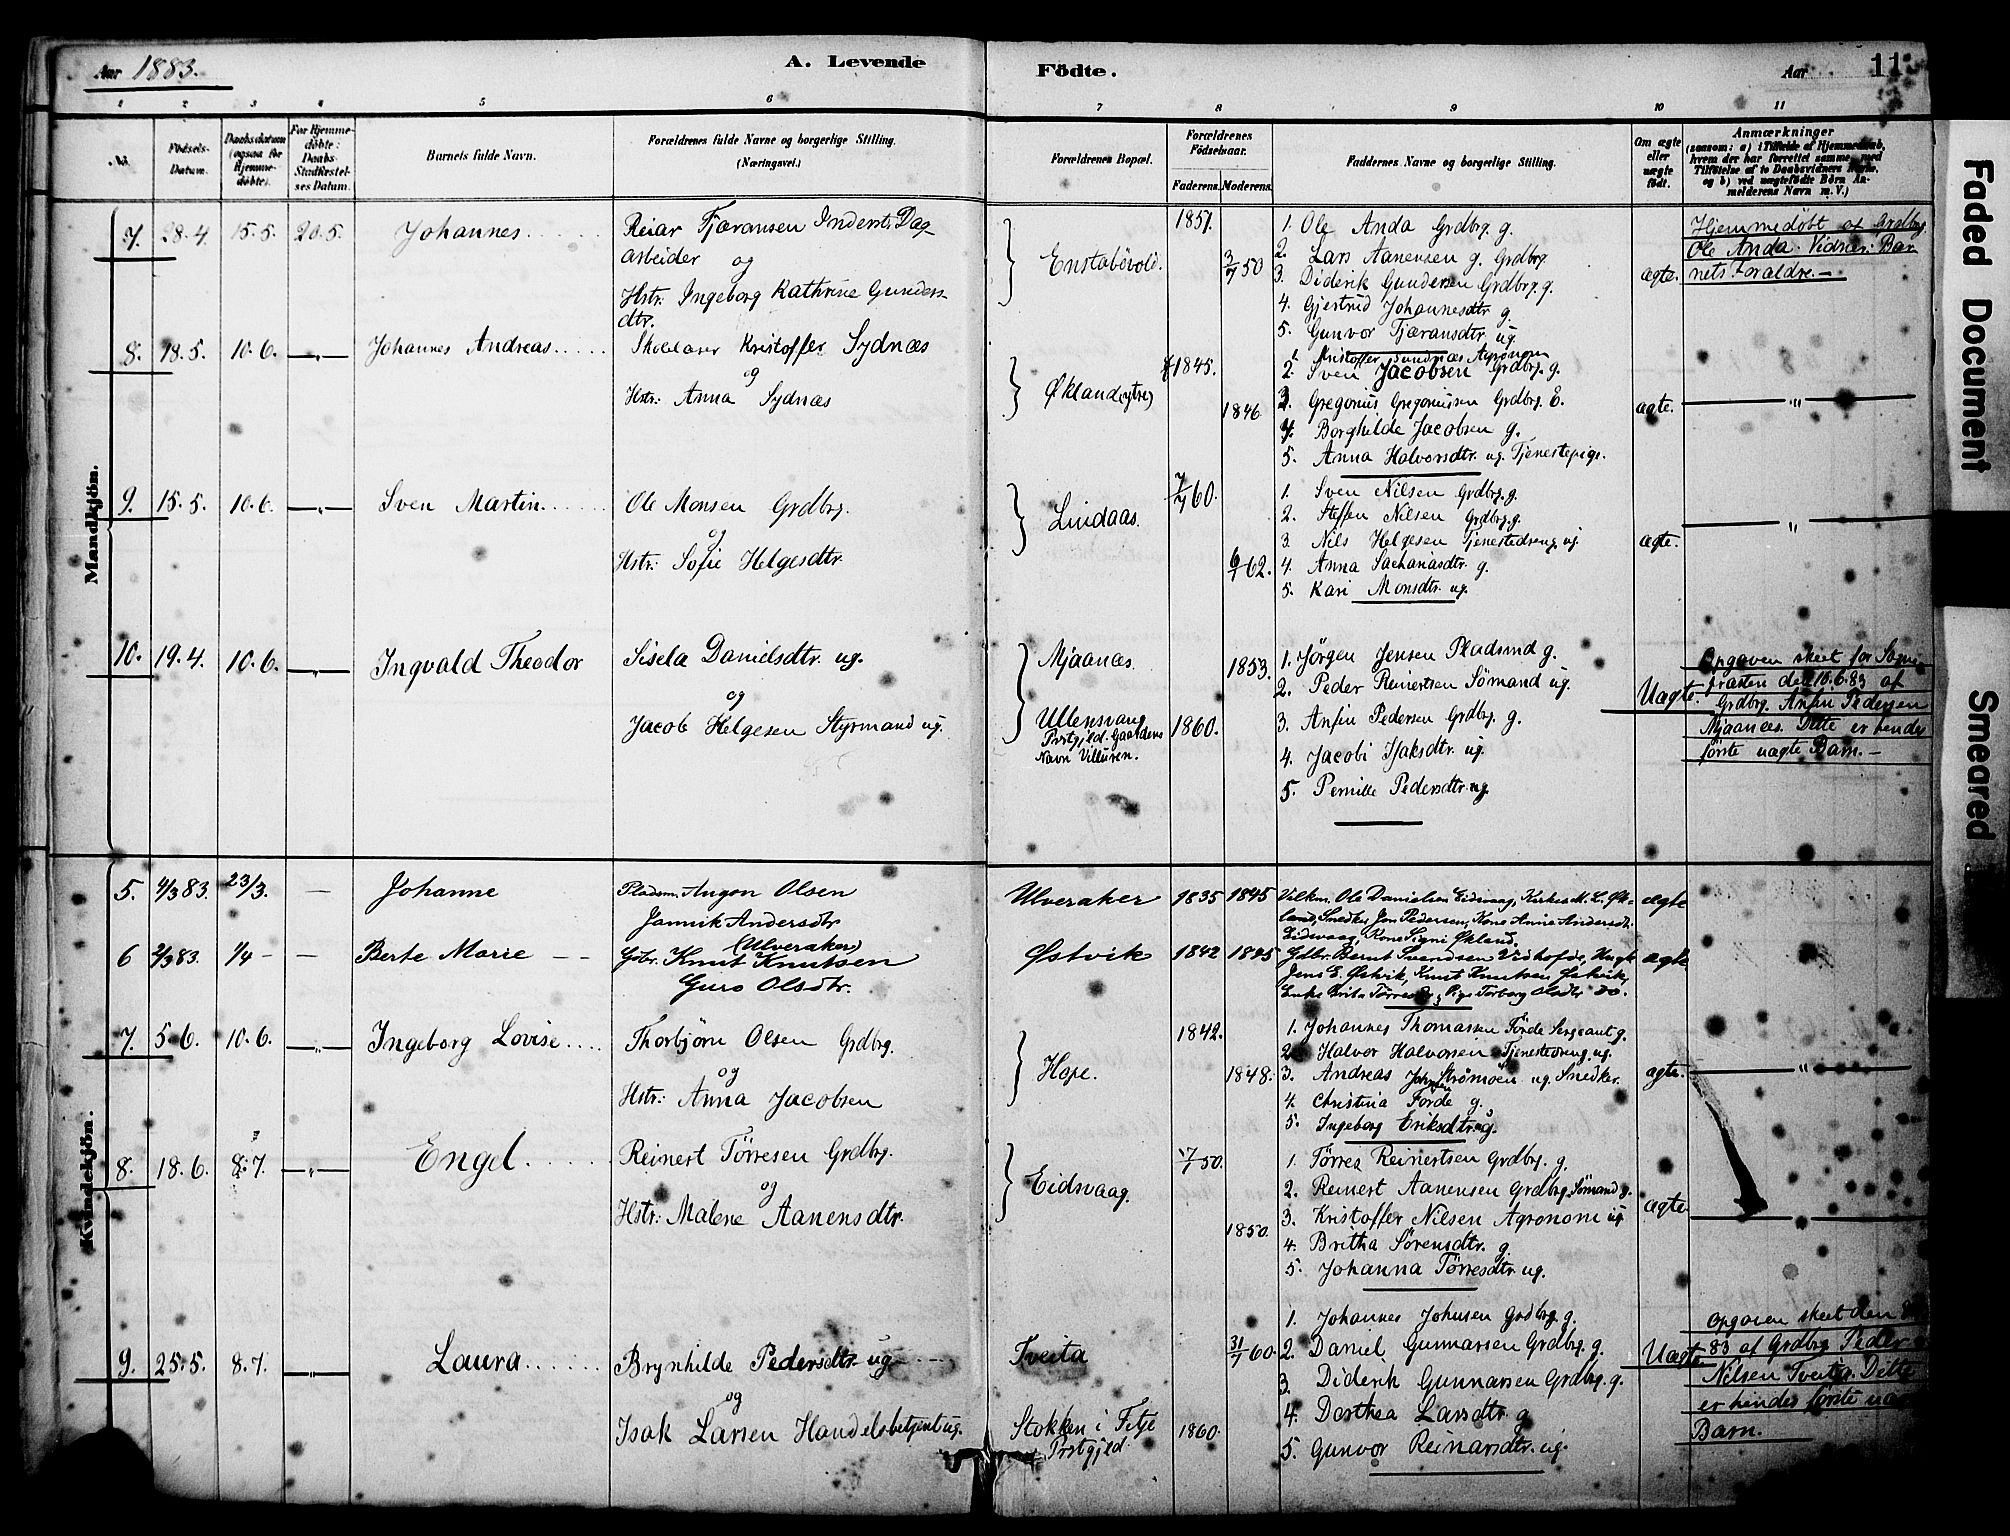 Aar 1883.
A. Levende
Födte.
Aar
11
1 2 3 4 5 6 7 8 9 10 11
No.
Födsels-
Datum.
Daabsdatum
(ogsaa for
Hjemme-
döbte).
For Hjemme-
döbte:
Daabs-
Stadfæstel-
ses Datum.
Barnets fulde Navn.
Forældrenes fulde Navne og borgerlige Stilling.
(Næringsvei.)
Forældrenes Bopæl.
Forældrenes
Födselsaar.
Faderens. Moderens.
Faddernes Navne og borgerlige Stilling.
Om ægte
eller
uægte
födt.
Anmærkninger
(saasom: a) i Tilfælde af Hjemmedaab,
hvem der har forrettet samme, med
Tilföielse af to Daabsvidners Navne,
og b) ved uægtefödte Börn An-
melderens Navn m. V.)
Mandkjön.
7. 28.4. 15.5. 20.5. Johannes
Reiar Tjæransen Inderst. Dag-
arbeider og
Hstr: Ingeborg Kathrine Gunders-
dtr.
Enstabövold.
1851.
3/7 50
1. Ole Anda Grdbrg. g.
2. Lars Aanensen g. Grdbrg.
3. Diderik Gundersen Grdbrg. g.
4. Gjertrud Johannesdtr g.
5. Gunvor Tjæransdtr. ug.
ægte.
Hjemmedöbt af Grdbrg.
Ole Anda. Vidner: Bar
nets Forældre.—
8. 18.5. 10.6. —„— Johannes Andreas
Skolelærer Kristoffer Sydnæs
og
Hstr: Anna Sydnæs
Økland (ytre)
1845.
1846.
1. Kristoffer Sundnæs Agronom
2. Sven Jacobsen Grdbrg. g.
3. Gregorius Gregoriussen Grdbrg. E.
4. Borghilde Jacobsen g.
5. Anna Halvorsdtr. ug. Tjenestepige.
ægte.
—„—
9. 15.5. 10.6. —„— Sven Martin
Ole Monsen Grdbrg.
og
Hstr: Sofie Helgesdtr.
Lindaas.
7/7 60.
6/1 62.
1. Sven Nilsen Grdbrg. g.
2. Steffen Nilsen Grdbrg. g.
3. Nils Helgesen Tjenestedreng ug.
4. Anna Sachariasdtr. g.
5. Kari Monsdtr. ug.
ægte.
—„—
10. 19.4. 10.6. —„— Ingvald Theodor
Sisela Danielsdtr. ug.
og
Jacob Helgesen Styrmand ug.
Mjaanæs.
Ullensvang
Prstgjeld. Gaardens
Navn Villuren.
1853.
1860.
1. Jörgen Jensen Pladsmd g.
2. Peder Reinertsen Sömand ug.
3. Anfin Pedersen Grdbrg. g.
4. Jacobi Isaksdtr. ug.
5. Pernille Pedersdtr. ug.
Uægte.
Opgaven skeet for Sogne-
præsten den 10.6.83 af
Grdbrg. Anfin Pedersen
Mjaanæs. Dette er hendes
förste uægte Barn.—
Kvindekjön.
5. 4/3 83. 23/3. — Johanne
Pladsm. Augon Olsen
Jannik Andersdtr
(Ulveraker)
Ulveraker
1835 1845
Vilkm. Ole Danielsen Eidsvaag, Kirkes. M. L. Øk-
land, Snedker Jon Pedersen, Kone Anne Andersdt.
Eidsvaag, Kone Signi Økland.
ægte
6 2/3 83. 1/4 — — Berte Marie
Gbr. Knut Knutsen
Guro Olsdtr.
Østvik
1842 1845
Gdbr. Bernt Svendsen Vidhofde,
Jens E. Østvik, Knut Knutsen Østvik,
Enke Brita Törresdtr, Pige Torborg Olsdtr do.
ægte
7. 5.6. 10.6. —„— Ingeborg Lovise
Thorbjörn Olsen Grdbrg.
og
Hstr: Anna Jacobsen
Hope.
1842.
1848.
1. Johannes Thomassen Förde Sergeant g.
2. Halvor Halvorsen Tjenestedreng ug.
3. Andreas Johnsen Strömøen ug. Snedker.
4. Christina Förde g.
5. Ingeborg Eriksdtr. ug.
ægte.
—„—
8. 18.6. 8.7. —„— Engel.
Reinert Törresen Grdbrg.
og
Hstr: Malene Aanensdtr.
Eidsvaag.
7/7 50.
1850.
1. Törres Reinertsen Grdbrg. g.
2. Reinert Aanensen Grdbrg. Sömand g.
3. Kristoffer Nilsen Agronom ug
4. Britha Sörensdtr. g.
5. Johanna Törresdtr. ug.
ægte
9. 25.5. 8.7. —„— Laura
Brynhilde Pedersdtr. ug.
og
Isak Larsen Handelsbetjent ug.
Tveita
Stokken i Fitje
Prstgjeld.
31/7 60.
1860.
1. Johannes Johnsen Grdbrg. g.
2. Daniel Gunnarsen Grdbrg. g.
3. Diderik Gunnarsen Grdbrg. g.
4. Dorthea Larsdtr. g
5. Gunvor Reinarsdtr. ug.
Uægte
Opgaven skeet den
83 af Grdbrg. Peder
Nilsen Tveita. Dette
er hendes förste uæ
Barn.
Faded Document
Smeared